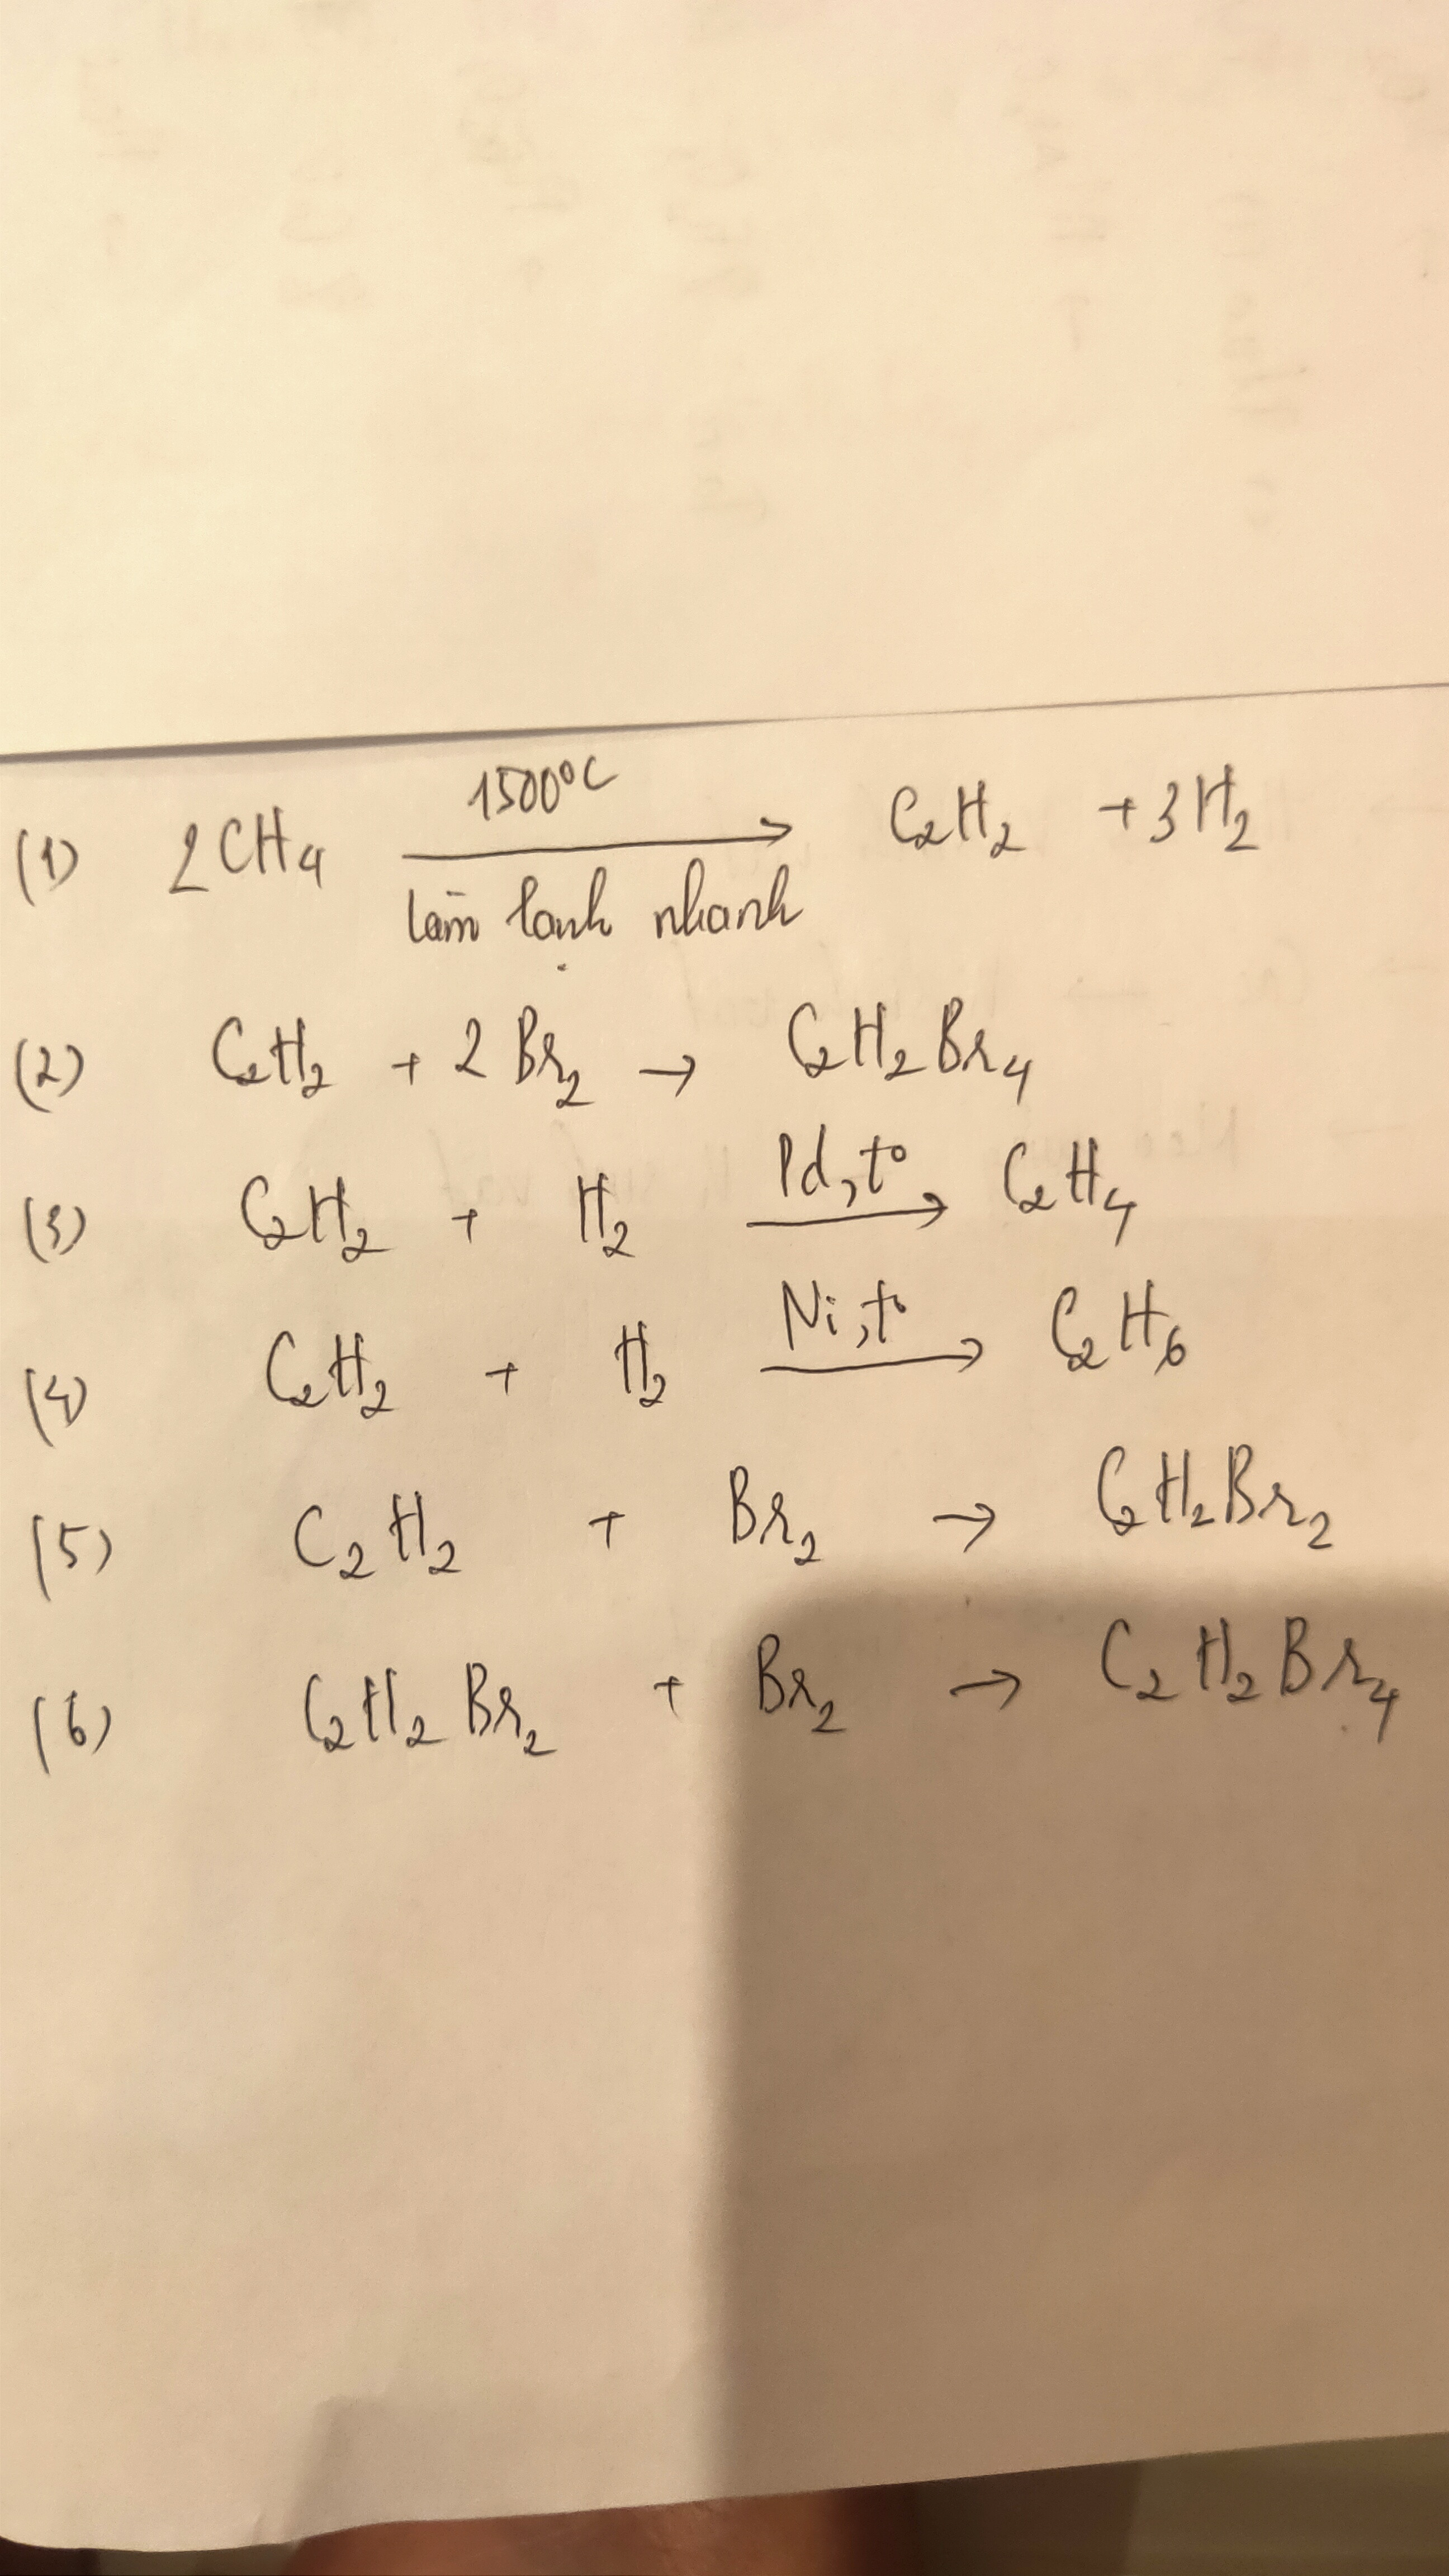 (1) 2CH₄ 1500°C → làm lạnh nhanh C₂H₂ + 3H₂
(2) C₂H₂ + 2Br₂ → C₂H₂Br₄
(3) C₂H₂ + H₂ Pd,t° → C₂H₄
(4) C₂H₂ + H₂ Ni,t° → C₂H₆
(5) C₂H₂ + Br₂ → C₂H₂Br₂
(6) C₂H₂Br₂ + Br₂ → C₂H₂Br₄